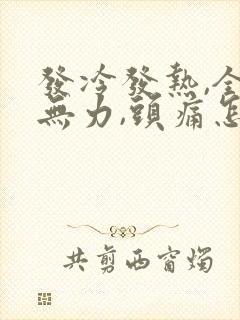 發冷發熱,全
無力,頭痛怎
共剪西窗燭